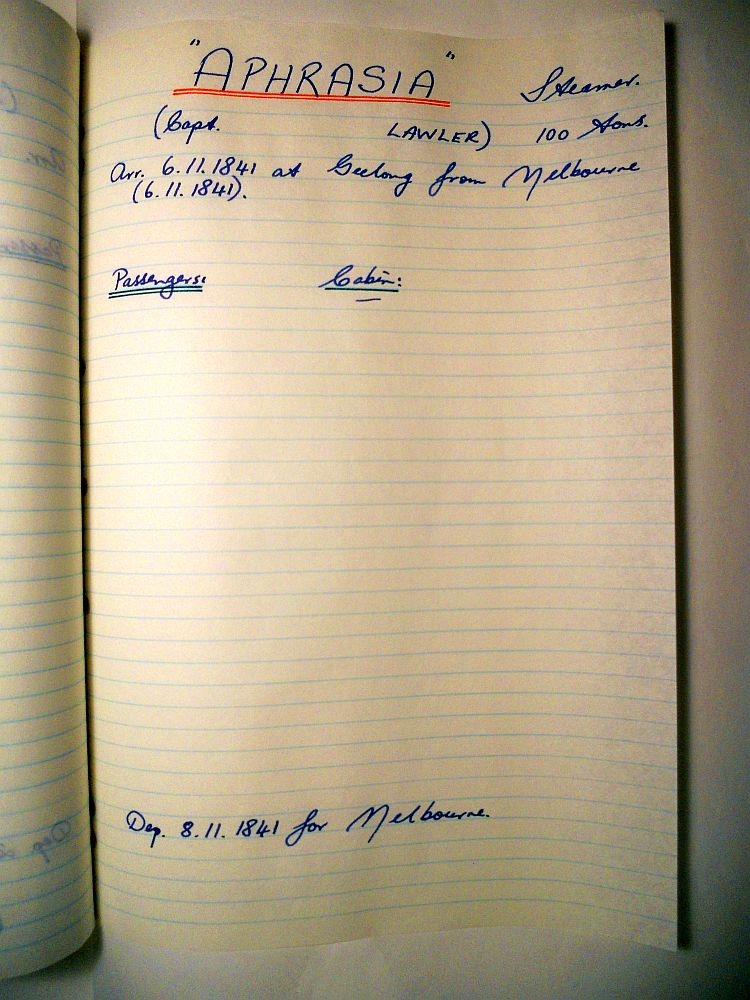 "APHRASIA" Steamer.
(Capt. LAWLER) 100 tons.
Arr. 6.11.1841 at Geelong from Melbourne
(6.11.1841).
Passengers: Cabin:
Dep. 8.11.1841 for Melbourne.